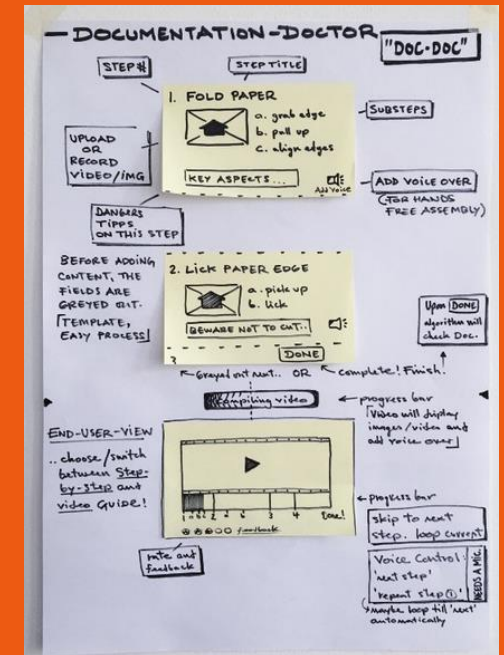 DOCUMENTATION-DOCTOR
"DOC-DOC"
STEP#
STEP TITLE
1. FOLD PAPER
a. grab edge
b. pull up
c. align edges
KEY ASPECTS...
Add Voice
SUBSTEPS
UPLOAD
OR
RECORD
VIDEO/IMG
ADD VOICE OVER
(FOR HANDS
FREE ASSEMBLY)
DANGERS
TIPPS
ON THIS STEP
BEFORE ADDING
CONTENT, THE
FIELDS ARE
GREYED OUT.
[TEMPLATE,
EASY PROCESS]
2. LICK PAPER EDGE
a. pick up
b. lick
BEWARE NOT TO CUT..
3
DONE
Upon DONE
algorithm will
check Doc.
Greyed out next.. OR
complete! Finish!
Compiling video
progress bar
[Video will display
images/video and
add voice over]
END-USER-VIEW
.. choose/switch
between Step-
by-step and
video Guide!
2 3 4 Done!
feedback
progress bar
skip to next
step. loop current
rate and
feedback
Voice Control:
'next step'
'repeat step ①'
NEEDS A MIC.
maybe loop till 'next'
automatically